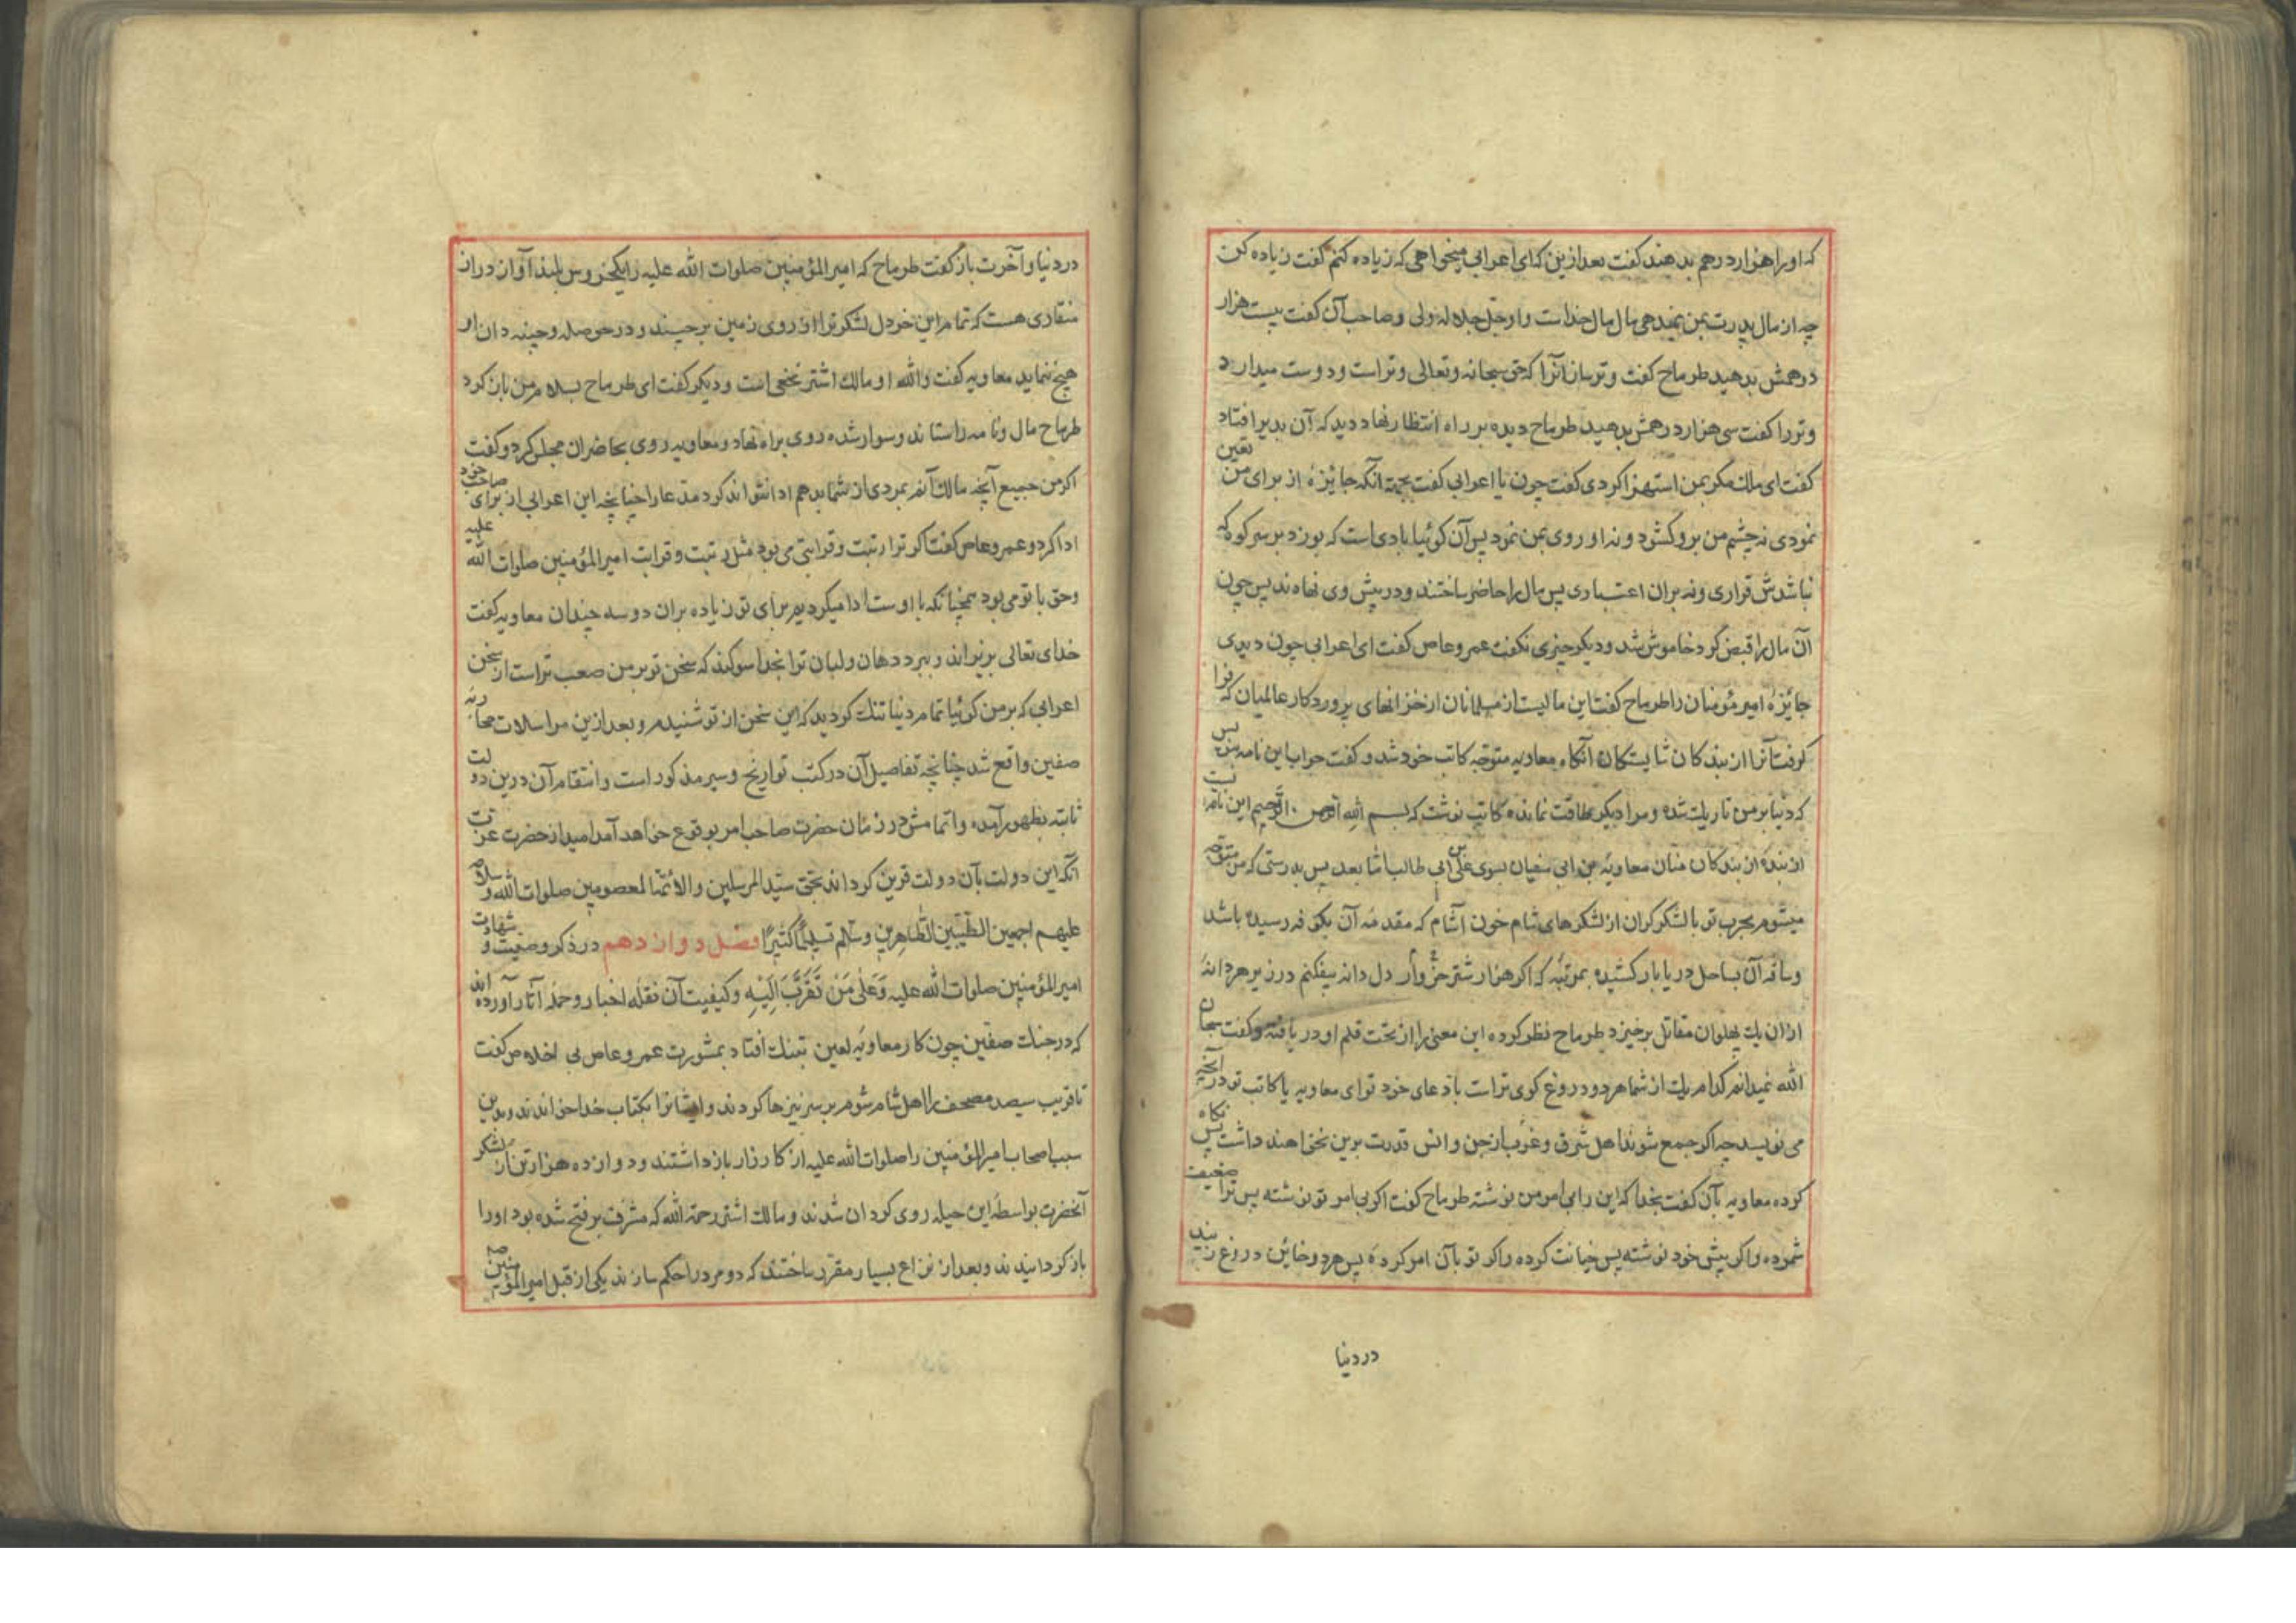 که او را هزار درهم بدهند کفت بعد ازین که ای اعرابی میخواهی که زیاده کنم کفت زیاده کن
چه از مال پدرت بمن نمیدهی مال مال خداست و او جل جلاله ولی و صاحب آن کفت بیست هزار
درهمش بدهید طرماح کفت و تر ساز آنرا که حق سبحانه و تعالی وتر است و دوست میدارد
وتر را کفت سی هزار درهمش بدهید طرماح دیده بر راه انتظار نهاد دید که آن بدیر افتاد
کفت ای ملک مکر بمن استهزا کردی کفت چون یا اعرابی کفت بجهة آنکه جائزهٔ از برای من تعین
نمودی نه چشم من برو کشود و نه او روی بمن نمود پس آن کوئیا بادی است که بوزد بر سر کوه که
نباشدش قراری و نه بران اعتباری پس مال را حاضر ساختند و در پیش وی نهادند پس چون
آن مال را قبض کرد خاموش شد و دیکر چیزی نکفت عمرو عاص کفت ای اعرابی چون دیدی
جائزهٔ امیر مؤمنان را طرماح کفت این مالیست از مسلمانان از خزانهای پروردکار عالمیان که فرا
کرفت آنرا از بندکان شایستکان آنکاه معاویه متوجه کاتب خود شد و کفت جواب این نامه بنویس
که دنیا بر من تاریک شده و مرا دیکر طاقت نمانده کاتب نوشت که بسم الله الرحمن الرحیم این نامه ایست
از بندهٔ از بندکان منان معاویة بن ابی سفیان بسوی علی بن ابی طالب اما بعد پس بدرستی که من متوجه
میشوم بحرب تو با لشکر کران از لشکرهای شام خون آشام که مقدمهٔ آن بکوفه رسیده باشد
و ساقهٔ آن بساحل دریا بار کشیده بمرتبهٔ که اکر هزار شتر خروار دل دانه بیفکنم در زیر هر دانهٔ
ازان یک پهلوان مقاتل برخیزد طرماح نظر کرده این معنی را از تحت قلم او دریافته و کفت سبحان
الله نمیدانم کدام یک از شما هر دو دروغ کوی تر است بادعای خود تو ای معاویه یا کاتب تو در آنچه
می نویسد چه اکر جمع شوند اهل شرق و غرب از جن و انس قدرت برین نخواهند داشت پس نکاه
کرده معاویه بآن کفت بخدا که این را بی امر من نوشته طرماح کفت اکر بی امر تو نوشته پس ترا ضعیف
شمرده و اکر پیش خود نوشته پس خیانت کرده و اکر تو بآن امر کردهٔ پس هر دو خائن دروغ زنید
در دنیا
در دنیا و آخرت باز کفت طرماح که امیر المؤمنین صلوات الله علیه را یکخروس بلند آواز دراز
منقاری هست که تمام این خردل لشکر ترا از روی زمین برچیند و در حوصله و چینه دان او
هیچ ننماید معاویه کفت والله او مالک اشتر نخعی است و دیکر کفت ای طرماح بسلام من باز کرد
طرماح مال و نامه را ستاند و سوار شده روی براه نهاد و معاویه روی بحاضران مجلس کرد و کفت
اکر من جمیع آنچه مالک آنم بمردی از شما بدهم ادا نتواند کرد مدعا را چنانچه این اعرابی از برای صاحب خود
ادا کرد و عمرو عاص کفت اکر ترا رتبت و قرابتی می بود مثل رتبت و قرابت امیر المؤمنین صلوات الله علیه
و حق با تو می بود همچنانکه با اوست ادا میکردیم برای تو زیاده بران دو سه چندان معاویه کفت
خدای تعالی بریزاند و ببرد دهان و لبان ترا بخدا سوکند که سخن تو بر من صعب تر است از سخن
اعرابی که بر من کوئیا تمام دنیا تنک کردید که این سخن از تو شنیدم و بعد ازین مراسلات محاربهٔ
صفین واقع شد چنانچه تفاصیل آن در کتب تواریخ و سیر مذکور است و انتقام آن درین دولت
ثابته بظهور آمده و اتمامش در زمان حضرت صاحب امر بوقوع خواهد آمد امید از حضرت عزت
آنکه این دولت بآن دولت قرین کرداند بحق سید المرسلین والائمة المعصومین صلوات الله و سلامه
علیهم اجمعین الطیبین الطاهرین و سلم تسلیما کثیرا فصل دوازدهم در ذکر وصیت و شهادت
امیر المؤمنین صلوات الله علیه وَعَلٰی مَنْ تَقَرَّبَ اِلَیْهِ و کیفیت آن نقلهٔ اخبار و حملهٔ آثار آورده اند
که در جنک صفین چون کار معاویهٔ لعین بتنک افتاد بمشورت عمرو عاص بی اخلاص کفت
تا قریب سیصد مصحف را اهل شام شوم بر سر نیزها کردند و ایشانرا بکتاب خدا خواندند و بدین
سبب اصحاب امیر المؤمنین را صلوات الله علیه از کارزار باز داشتند و دوازده هزار تن از لشکر
آنحضرت بواسطهٔ این حیله روی کردان شدند و مالک اشتر رحمة الله که مشرف بر فتح شده بود او را
باز کردانیدند و بعد از نزاع بسیار مقرر ساختند که دو مرد را حکم سازند یکی از قبل امیر المؤمنین